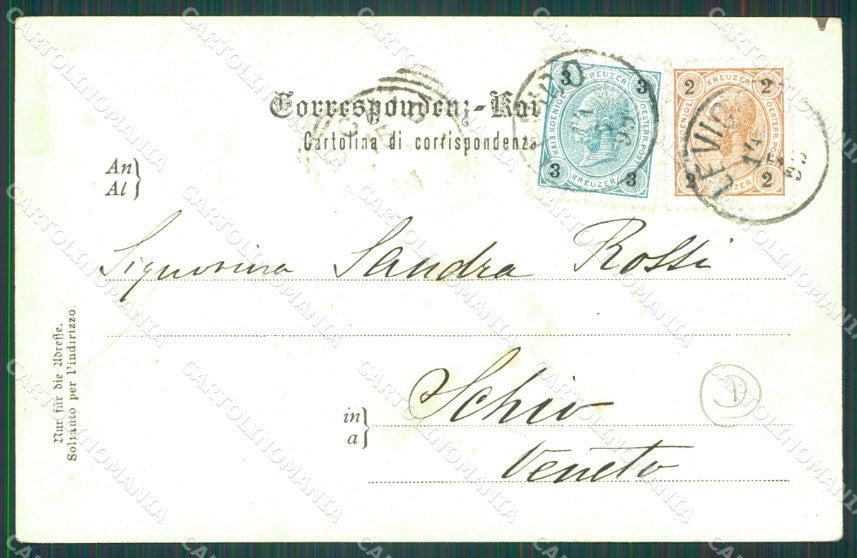 Correspondenz-Kar
Cartolina di corrispondenza
An
Al
Signorina Sandra Rossi
in
a
Schio
Veneto
Nur für die Adresse.
Soltanto per l'indirizzo
3 KREUZER 3
KAIS. KOENIGL. OESTERR. POST
3 KREUZER 3
2 KREUZER 2
KAIS. KOENIGL. OESTERR. POST
2 KREUZER 2
LEVICO
CARTOLINOMANIA